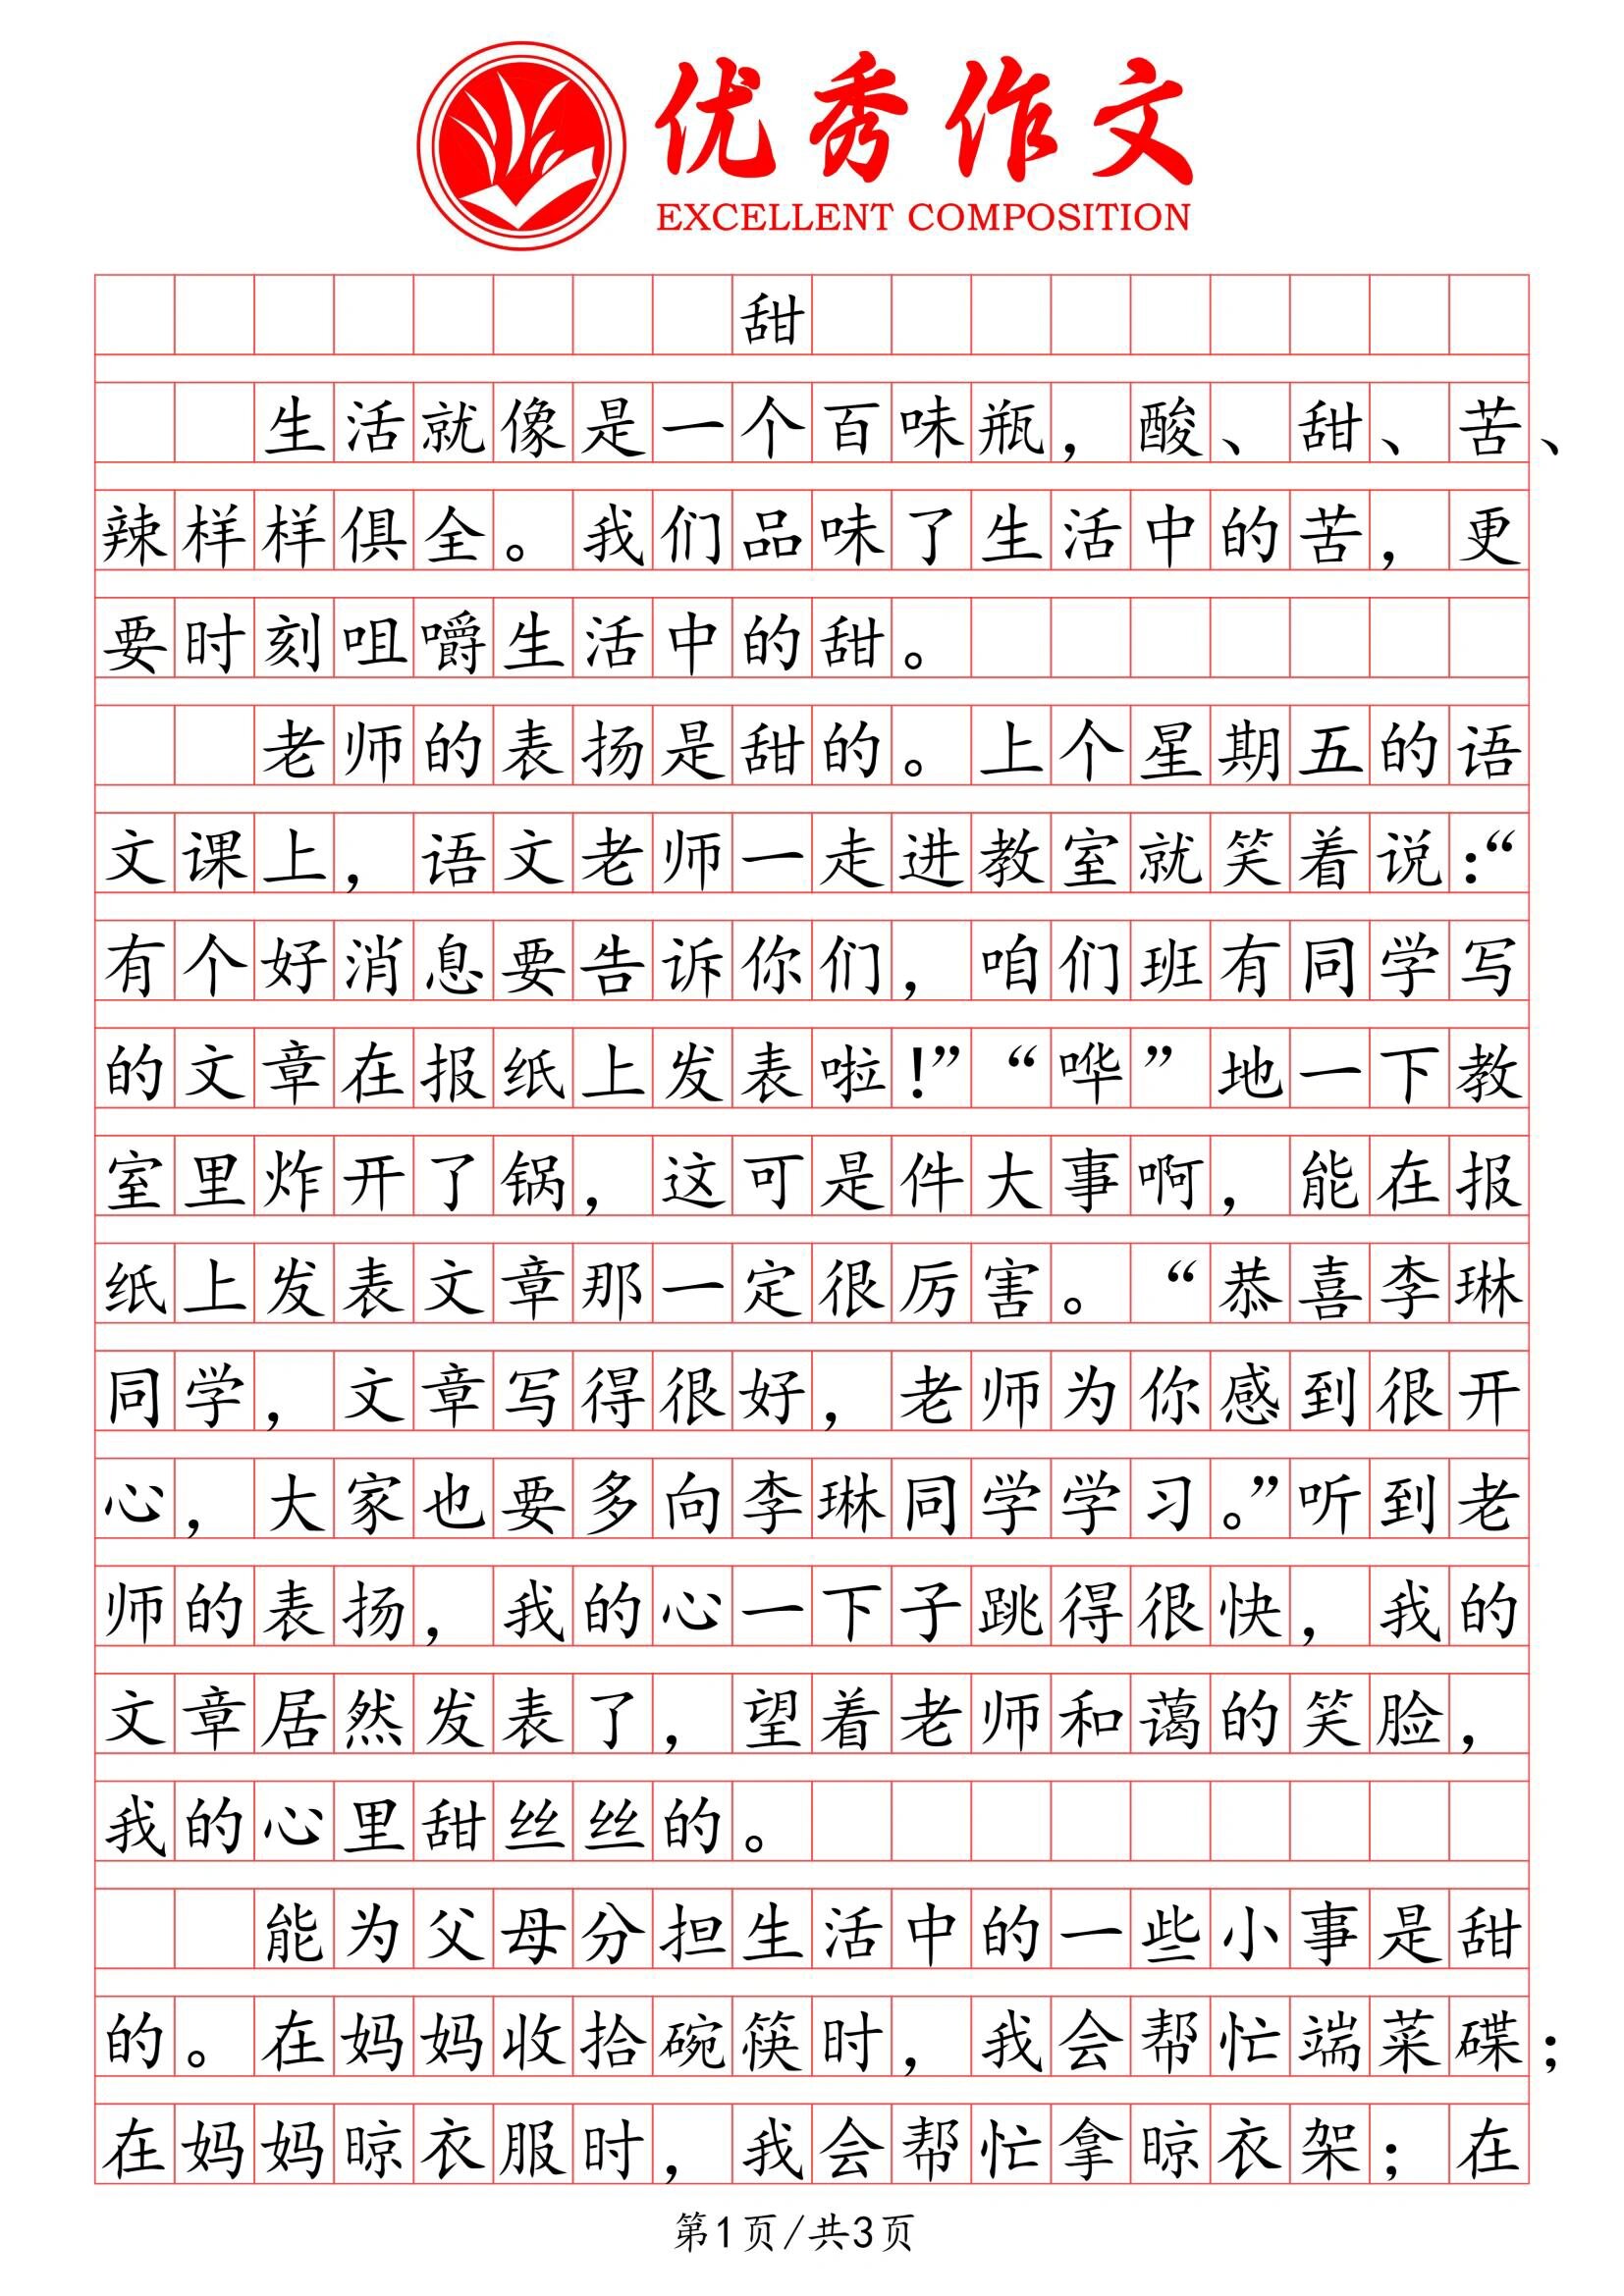 优秀作文
EXCELLENT COMPOSITION
甜
生活就像是一个百味瓶，酸、甜、苦、
辣样样俱全。我们品味了生活中的苦，更
要时刻咀嚼生活中的甜。
老师的表扬是甜的。上个星期五的语
文课上，语文老师一走进教室就笑着说：“
有个好消息要告诉你们，咱们班有同学写
的文章在报纸上发表啦！”“哗”地一下教
室里炸开了锅，这可是件大事啊，能在报
纸上发表文章那一定很厉害。“恭喜李琳
同学，文章写得很好，老师为你感到很开
心，大家也要多向李琳同学学习。”听到老
师的表扬，我的心一下子跳得很快，我的
文章居然发表了，望着老师和蔼的笑脸，
我的心里甜丝丝的。
能为父母分担生活中的一些小事是甜
的。在妈妈收拾碗筷时，我会帮忙端菜碟；
在妈妈晾衣服时，我会帮忙拿晾衣架；在
第1页/共3页